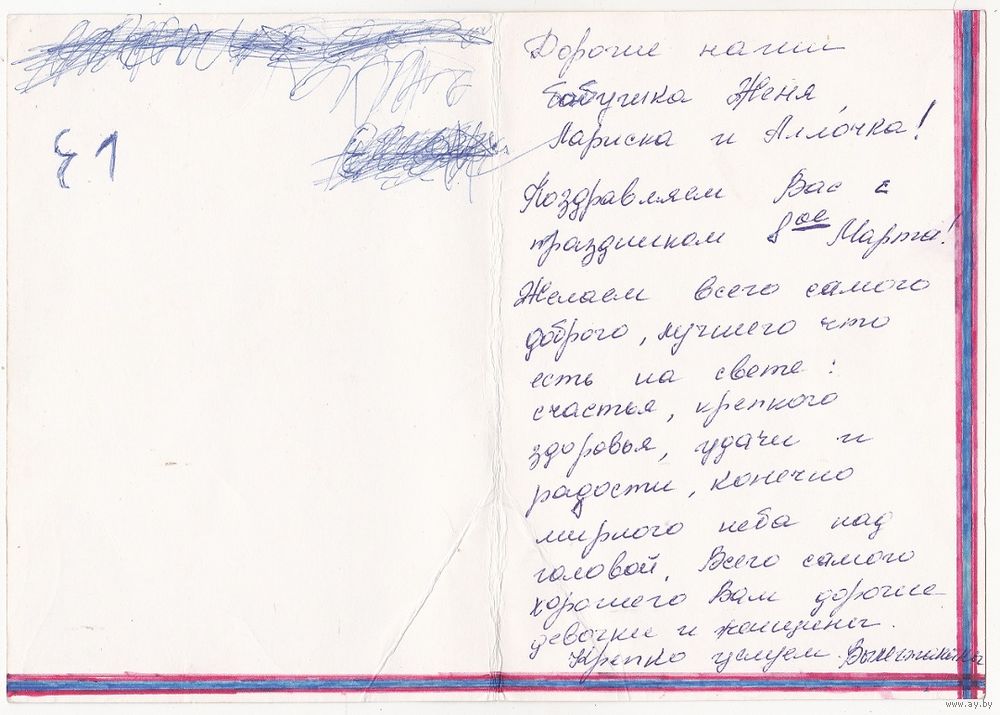 Е1
Дорогие наши
бабушка Женя,
Лариска и Аллочка!
Поздравляем Вас с
праздником 8ое Марта!
Желаем всего самого
доброго, лучшего что
есть на свете:
счастья, крепкого
здоровья, удачи и
радости, конечно
мирного неба над
головой. Всего самого
хорошего Вам дорогие
девочки и женщины.
Крепко целуем.
www.ay.by